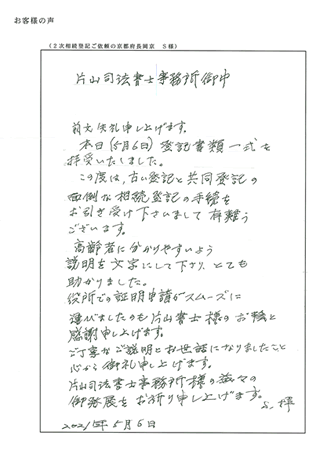 お客様の声
(2次相続登記ご依頼の京都府長岡京 S様)
片山司法書士事務所御中
前文失礼申し上げます。
本日(5月6日)登記書類一式を
拝受いたしました。
この度は、古い登記と共同登記の
面倒な相続登記の手続を
お引き受け下さいまして有難う
ございます。
高齢者に分かりやすいよう
説明を文字にして下さり、とても
助かりました。
役所での証明申請がスムーズに
運びましたのも片山書士様のお蔭と
感謝申し上げます。
ご丁寧なご説明とお世話になりましたこと
心から御礼申し上げます。
片山司法書士事務所様の益々の
御発展をお祈り申し上げます。
S. 拝
2021年5月6日